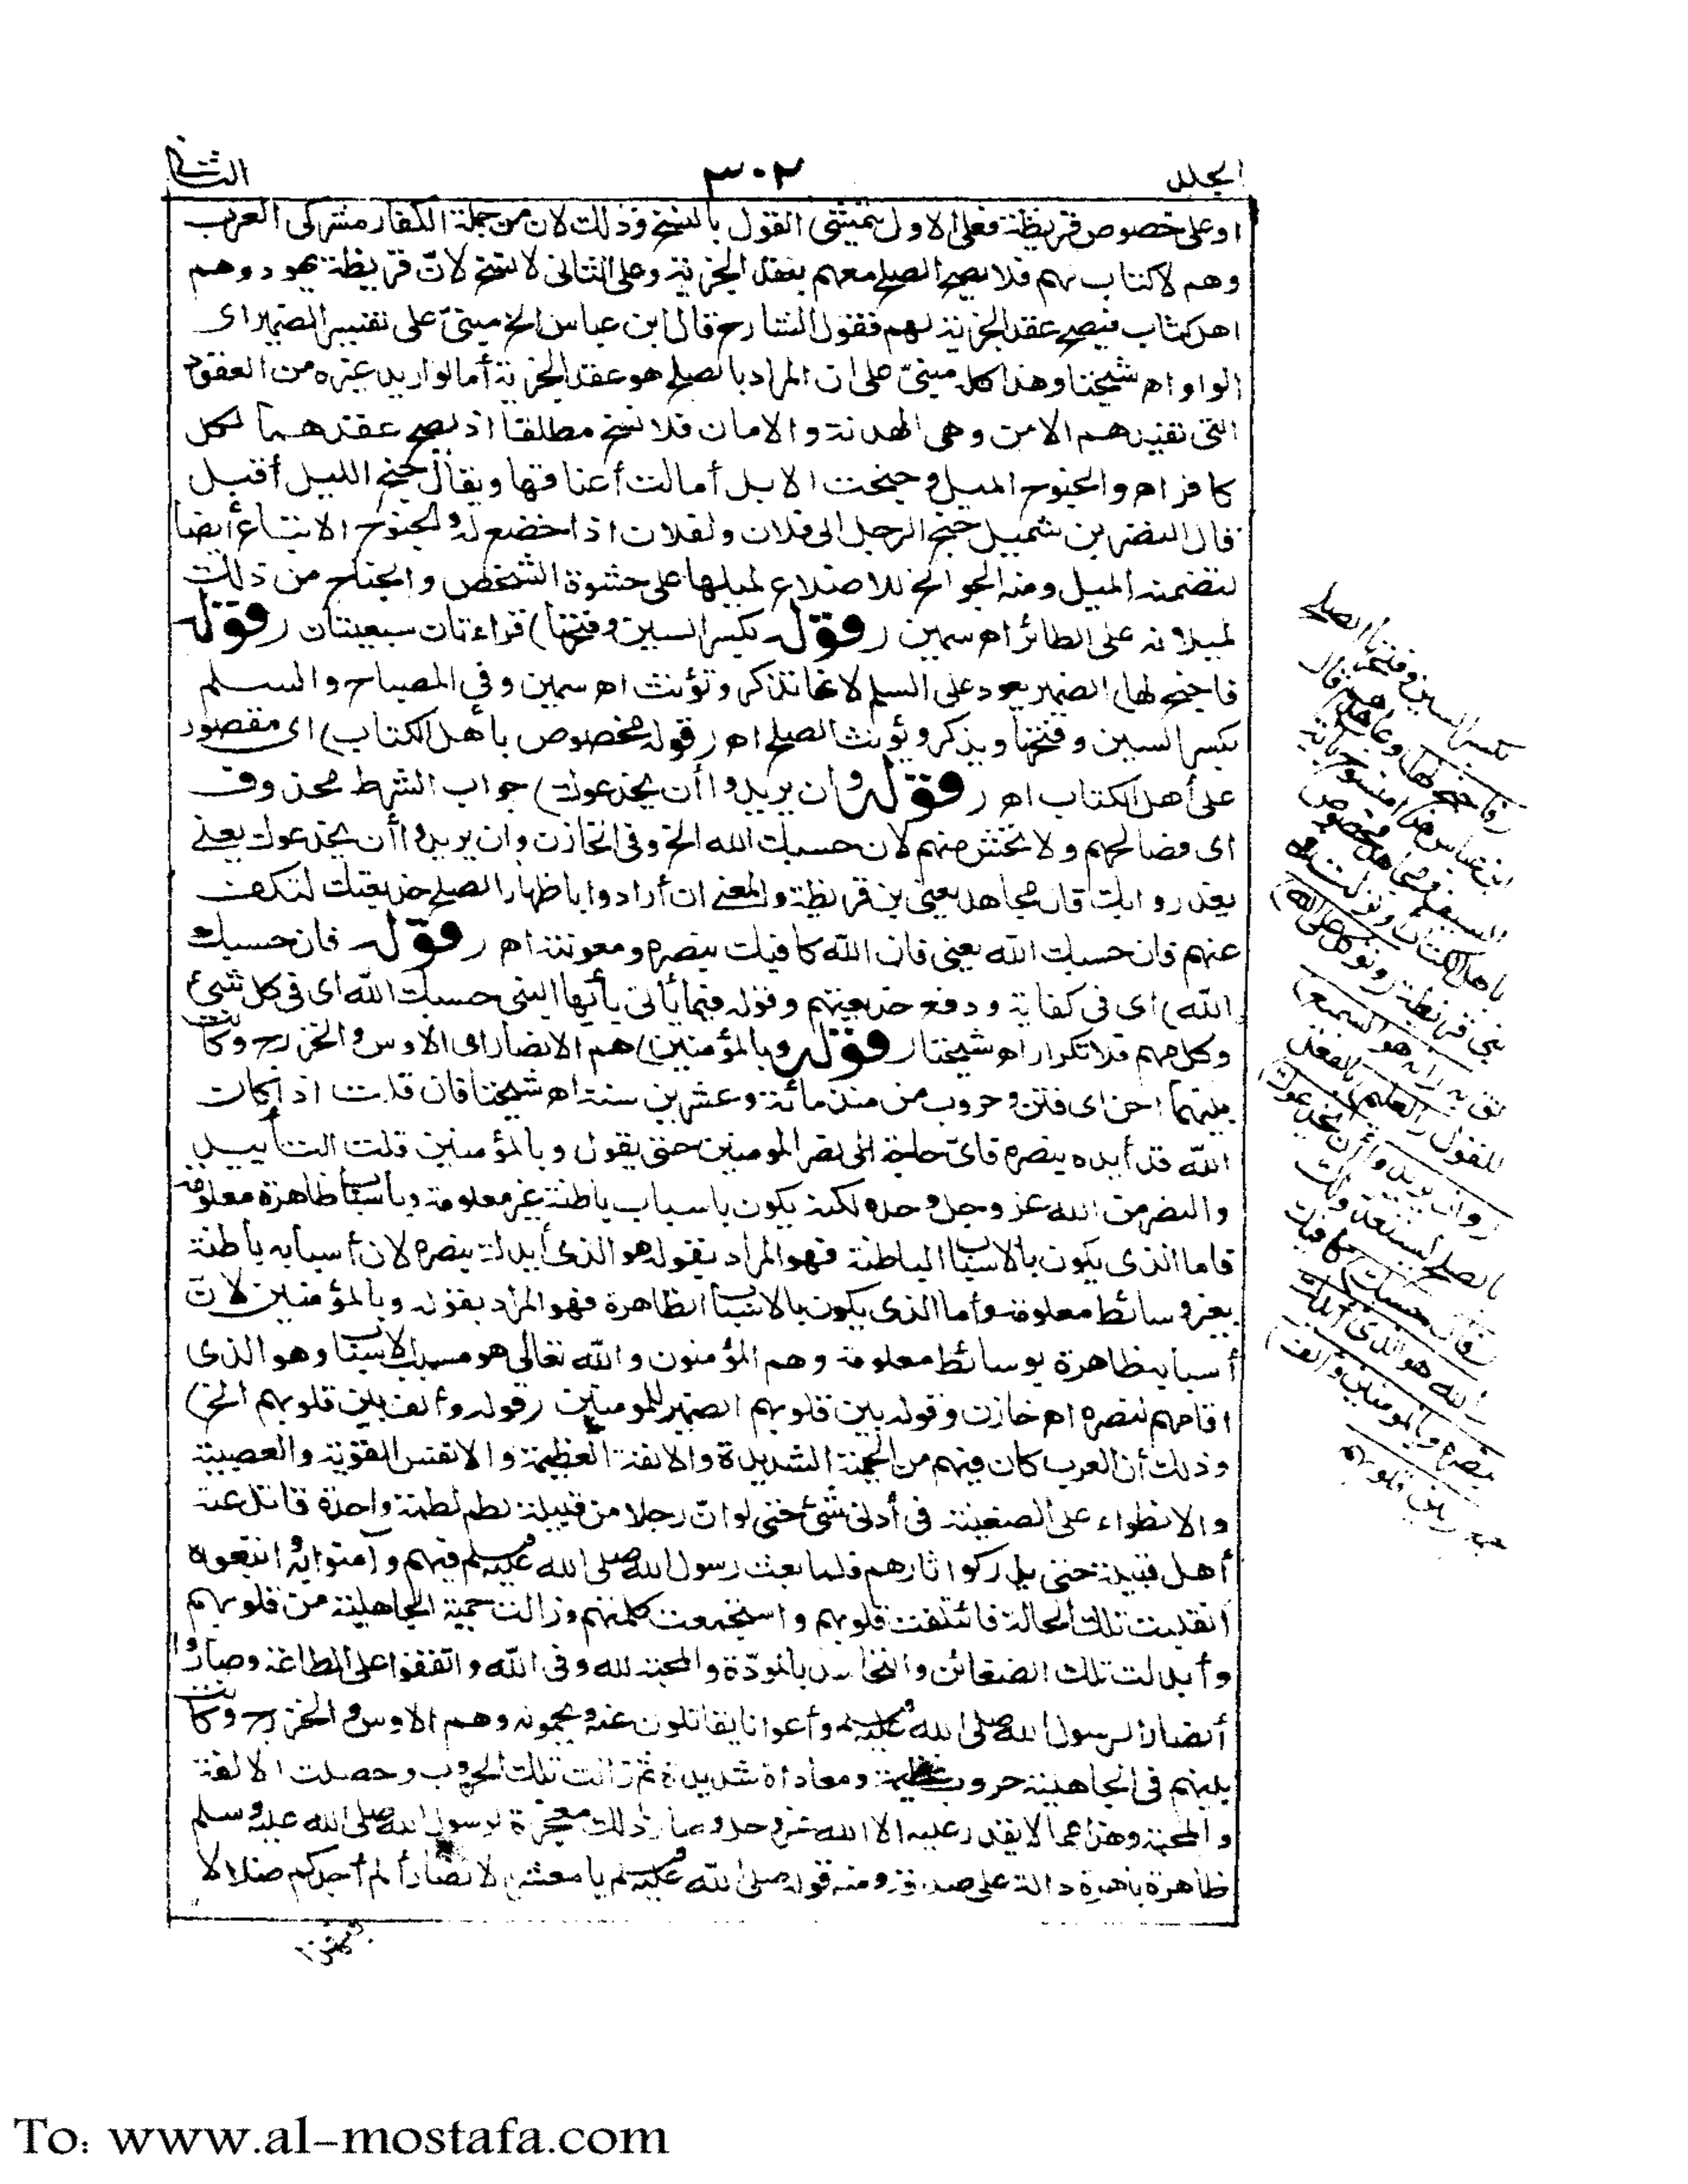 المجلد
٣٠٢
الثانى
او على خصوص قريظة فعلى الاول يتمشى القول بالنسخ وذلك لان من جملة الكفار مشركى العرب
وهم لا كتاب لهم فلا يصح الصلح معهم بعقد الجزية وعلى الثانى لا نسخ لانّ قريظة يهود وهم
اهل كتاب فيصح عقد الجزية لهم فقول الشارح قال ابن عباس الخ مبنىّ على تفسير الضمير اى
الواو اه شيخنا وهذا كله مبنىّ على ان المراد بالصلح هو عقد الجزية أما لو اريد غيره من العقود
التى تفيدهم الامن وهى الهدنة والامان فلا نسخ مطلقا اذ يصح عقدهما لكل
كافر اه والجنوح الميل وجنحت الابل أمالت أعناقها ويقال جنح الليل أقبل
قال النضر بن شميل جنح الرجل الى فلان ولفلان اذا خضع له والجنوح الاتباع أيضا
لتضمنه الميل ومنه الجوانح للاضلاع لميلها على حشوة الشخص والجناح من ذلك
لميلانه على الطائر اه سمين (قوله بكسر السين وفتحها) قراءتان سبعيتان (قوله
فاجنح لها) الضمير يعود على السلم لانها تذكر وتؤنث اه سمين وفى المصباح والسلم
بكسر السين وفتحها ويذكر ويؤنث الصلح اه (قوله مخصوص بأهل الكتاب) اى مقصور
على أهل الكتاب اه (قوله وان يريدوا أن يخدعوك) جواب الشرط محذوف
اى فصالحهم ولا تخش منهم لان حسبك الله الخ وفى الخازن وان يريدوا أن يخدعوك يعنى
يغدروا بك قال مجاهد يعنى بنى قريظة والمعنى ان أرادوا باظهار الصلح خديعتك لتكف
عنهم فان حسبك الله يعنى فان الله كافيك بنصره ومعونته اه (قوله فان حسبك
الله) اى فى كفاية ودفع خديعتهم وقوله فيما يأتى يأيها النبى حسبك الله اى فى كل شئ
وكل مهم فلا تكرار اه شيخنا (قوله وبالمؤمنين) هم الانصار اى الاوس والخزرج وكانت
بينهما احن اى فتن وحروب من منذ مائة وعشرين سنة اه شيخنا فان قلت اذا كان
الله قد أيده بنصره فاىّ حاجة الى نصر المومنين حتى يقول وبالمؤمنين قلت التأييد
والنصر من الله عز وجل وحده لكنه يكون باسباب باطنة غير معلومة وبأسباب ظاهرة معلومة
فاما الذى يكون بالاسباب الباطنة فهو المراد بقوله هو الذى أيدك بنصره لان أسبابه باطنة
بغير وسائط معلومة وأما الذى يكون بالاسباب الظاهرة فهو المراد بقوله وبالمؤمنين لانّ
أسبابه ظاهرة بوسائط معلومة وهم المؤمنون والله تعالى هو مسبب الاسباب وهو الذى
اقامهم لنصره اه خازن وقوله بين قلوبهم الضمير للمومنين (قوله وألف بين قلوبهم الخ)
وذلك أن العرب كان فيهم من الحمية الشديدة والانفة العظيمة والانفس القوية والعصبية
والانطواء على الضغينة فى أدنى شئ حتى لو انّ رجلا من قبيلة لطم لطمة واحدة قاتل عنه
أهل قبيلته حتى يدركوا ثارهم فلما بعث رسول الله صلى الله عليه وسلم فيهم وآمنوا به واتبعوه
انقلبت تلك الحالة فائتلفت قلوبهم واستجمعت كلمتهم وزالت حمية الجاهلية من قلوبهم
وأبدلت تلك الضغائن والتحاسد بالمودّة والمحبة لله وفى الله واتفقوا على الطاعة وصاروا
أنصارا لرسول الله صلى الله عليه وسلم وأعوانا يقاتلون عنه ويحمونه وهم الاوس والخزرج وكانت
بينهم فى الجاهلية حروب عظيمة ومعاداة شديدة ثم زالت تلك الحروب وحصلت الالفة
والمحبة وهذا مما لا يقدر عليه الا الله عز وجل وصار ذلك معجزة لرسول الله صلى الله عليه وسلم
ظاهرة باهرة دالة على صدقه ومنه قوله صلى الله عليه وسلم يا معشر الانصار ألم أجدكم ضلالا
بكسر السين وفتحها الصلح
(فاجنح لها) وعاهدهم قال
ابن عباس هذا منسوخ بآية
السيف ومجاهد مخصوص
باهل الكتاب اذ نزلت فى
بنى قريظة (وتوكل على الله)
ثق به (انه هو السميع)
للقول (العليم) بالفعل
(وان يريدوا أن يخدعوك)
بالصلح ليستعدوا لك
(فان حسبك) كافيك
(الله هو الذى أيدك
بنصره وبالمومنين وألف)
جمع (بين قلوبهم
To: www.al-mostafa.com